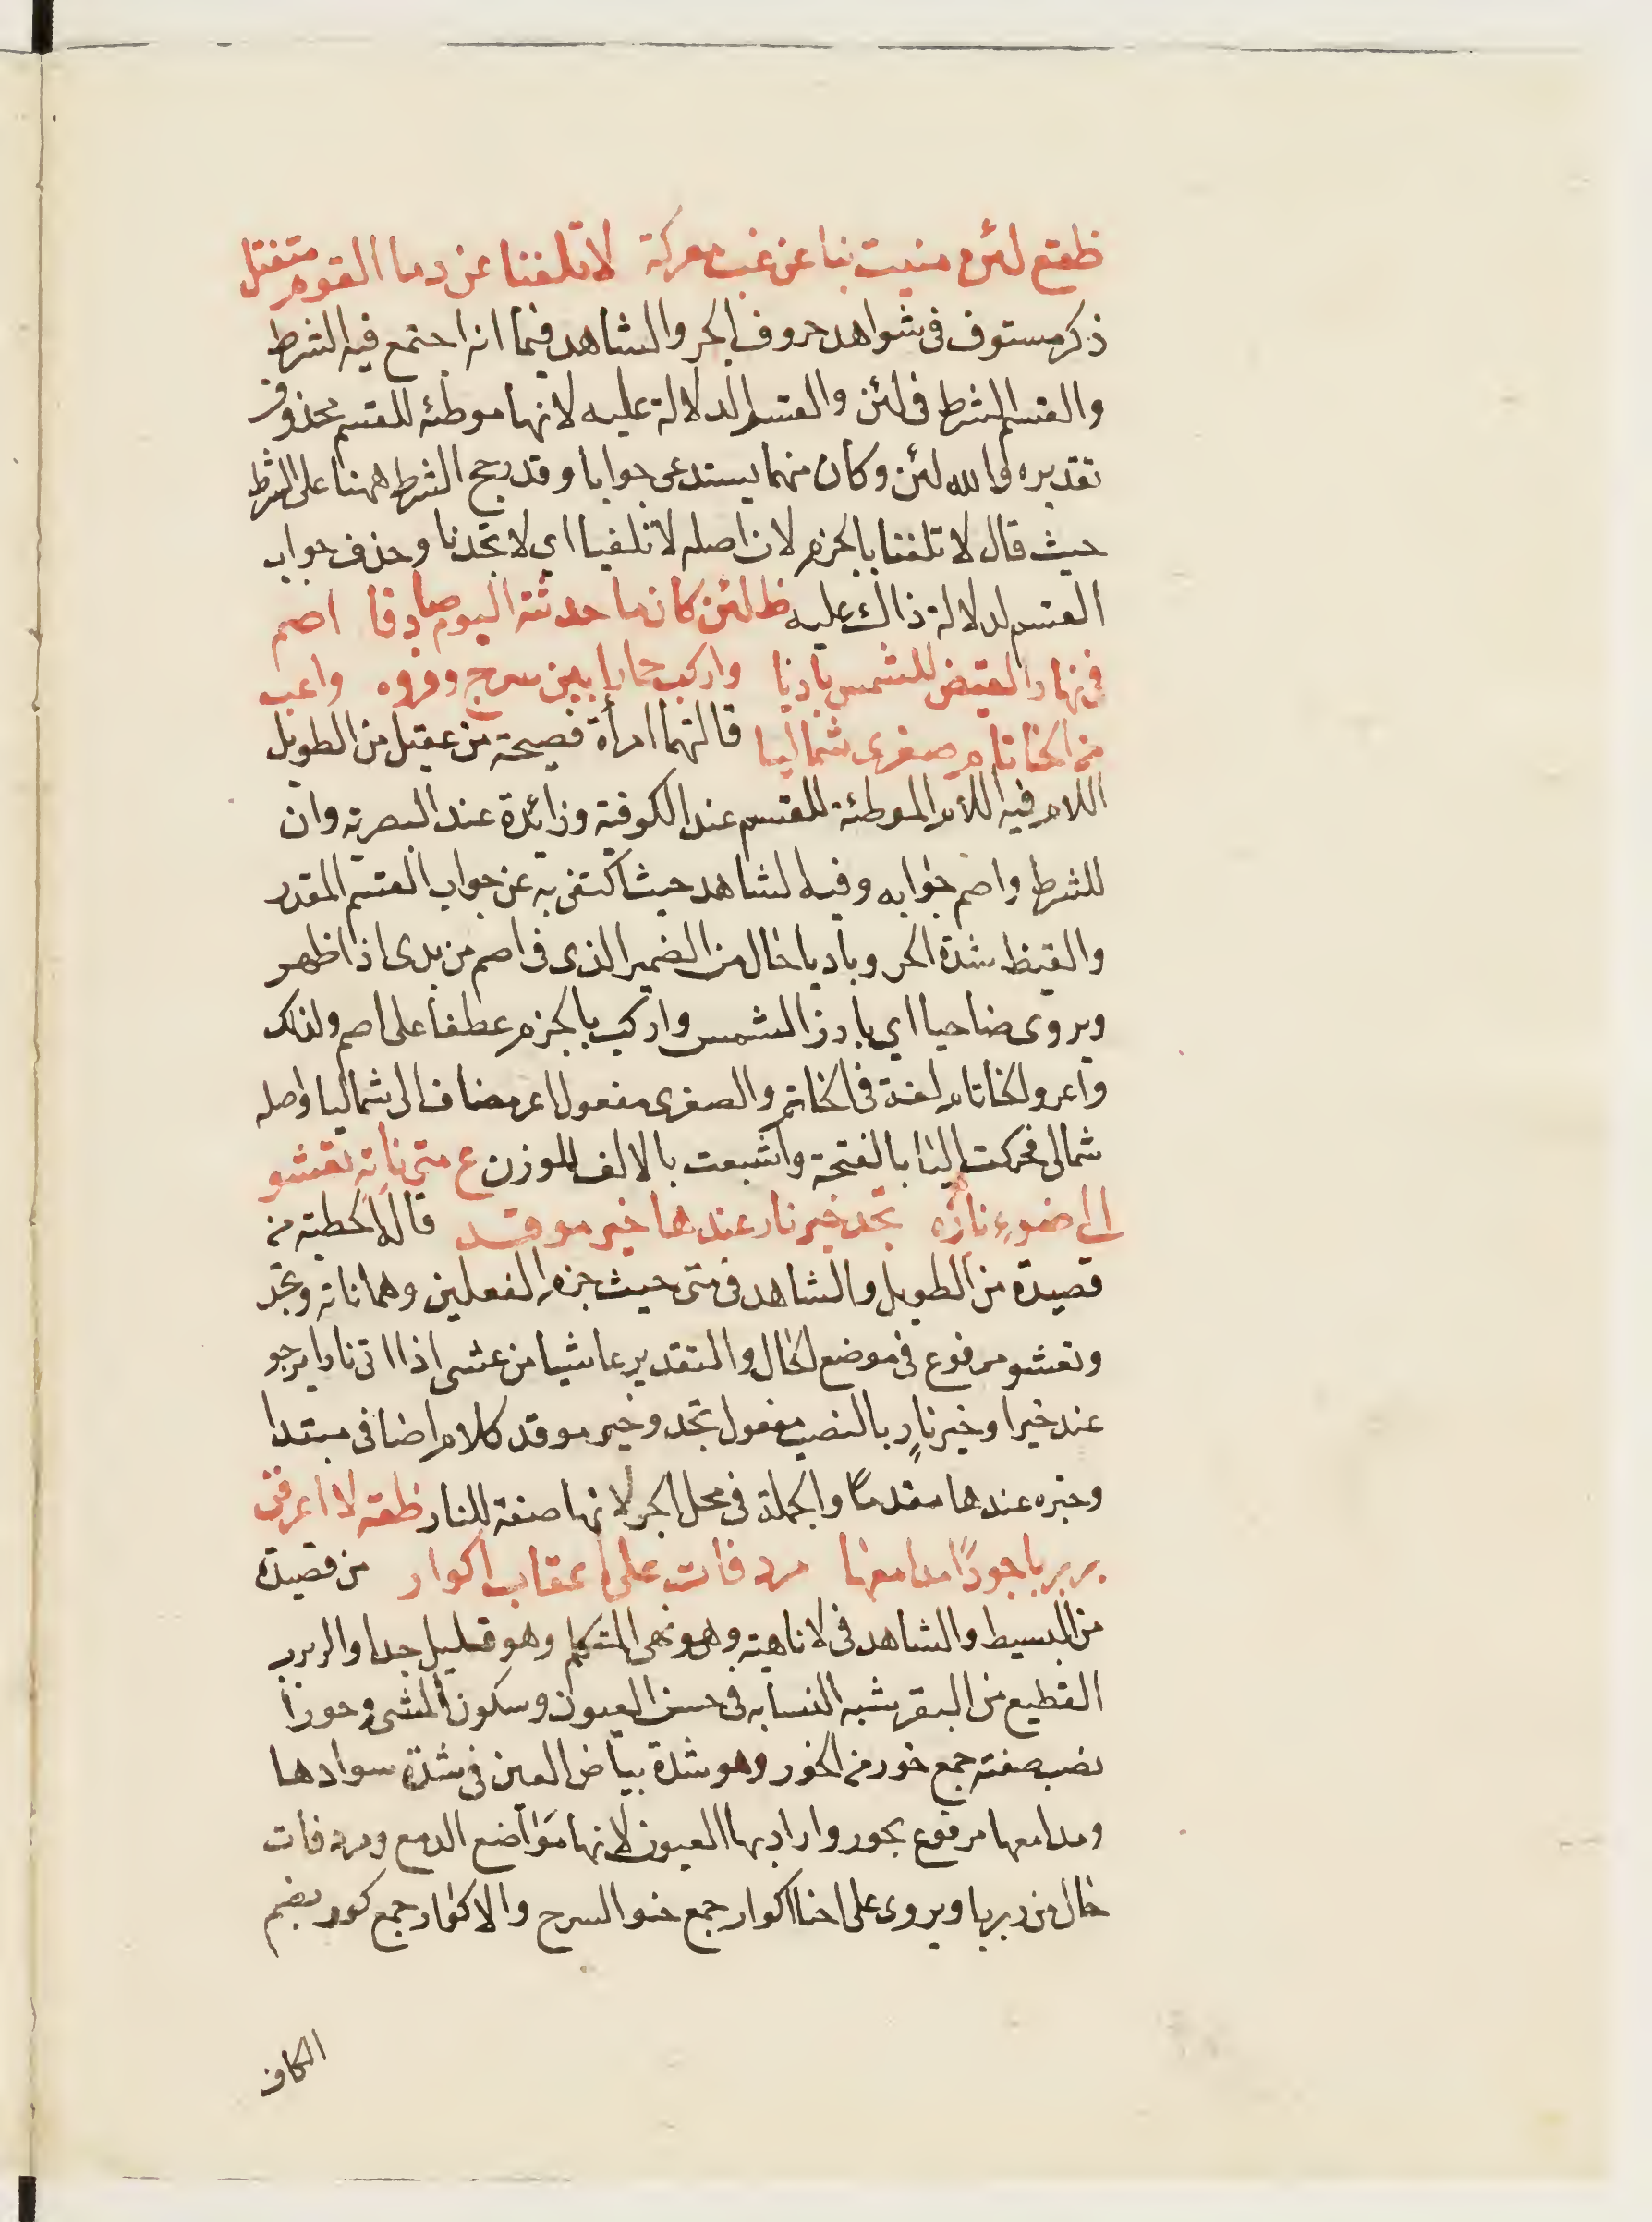 ظقع لئن منيت بنا عن غب معركة لا تلفنا عن دما القوم ننتقل
ذكر مستوف فى شواهد حروف الجر والشاهد فيما انه اجتمع فيه الشرط
والقسم الشرط فى لئن والقسم الدلالة عليه لانها موطئه للقسم محذوف
تقديره والله لئن وكان منهما يستدعى جوابا وقد رجح الشرط ههنا على الشرط
حيث قال لا تلفنا بالجزم لان اصله لا تلفينا اى لا تجدنا وحذف جواب
القسم لدلالة ذاك عليه ظ لئن كان ما حدثته اليوم صادقا اصم
فى نهار القيض للشمس باديا واركب حمارا بين سرج وفروه واعب
من الخاتام صغرى شماليا قالتهما امرأة فصيحة من عقيل من الطويل
اللام فيه اللام الموطئة للقسم عند الكوفية وزائدة عند البصرية وان
للشرط واصم جوابه وفيه الشاهد حيث اكتفى به عن جواب القسم المقدر
والقيظ شدة الحر وباديا حال من الضمير الذى فى اصم من بدى اذا ظهر
ويروى ضاحيا اي بارز الشمس واركب بالجزم عطفا على اصم ولذلك
واعر والخاتام لغة فى الخاتم والصغرى مفعول اعر مضاف الى شماليا واصله
شمالى فحركت اليا بالفتحة واشبعت بالالف للوزن ع متى تاته تعشو
الى ضوء ناره تجد خير نار عندها خير موقد قاله الحطية من
قصيدة من الطويل والشاهد فى متى حيث جزم الفعلين وهما تاته وتجد
وتعشو مرفوع فى موضع الحال والتقدير عاشيا من عشى اذا اتى نارا يرجو
عند خيرا وخير نار بالنصب مفعول تجد وخير موقد كلام اضافى مبتدا
وخبره عندها مقدما والجملة فى محل الجر لانها صفة للنار ظقه لا اعرفن
بربربا حورا مدامعها مردفات على اعقاب اكوار من قصيدة
من البسيط والشاهد فى لا ناهية وهو نهى المتكلم وهو قليل جدا والربرب
القطيع من البقر شبه النسا به فى حسن العيون وسكون المشى وحورا
نصب صفته جمع حور من الحور وهو شدة بياض العين فى شدة سوادها
ومدامعها مرفوع بحور واراد بها العيون لانها مواضع الدمع ومردفات
حال من ربربا ويروى على احنا اكوار جمع حنو السرج والاكوار جمع كور بضم
الكاف